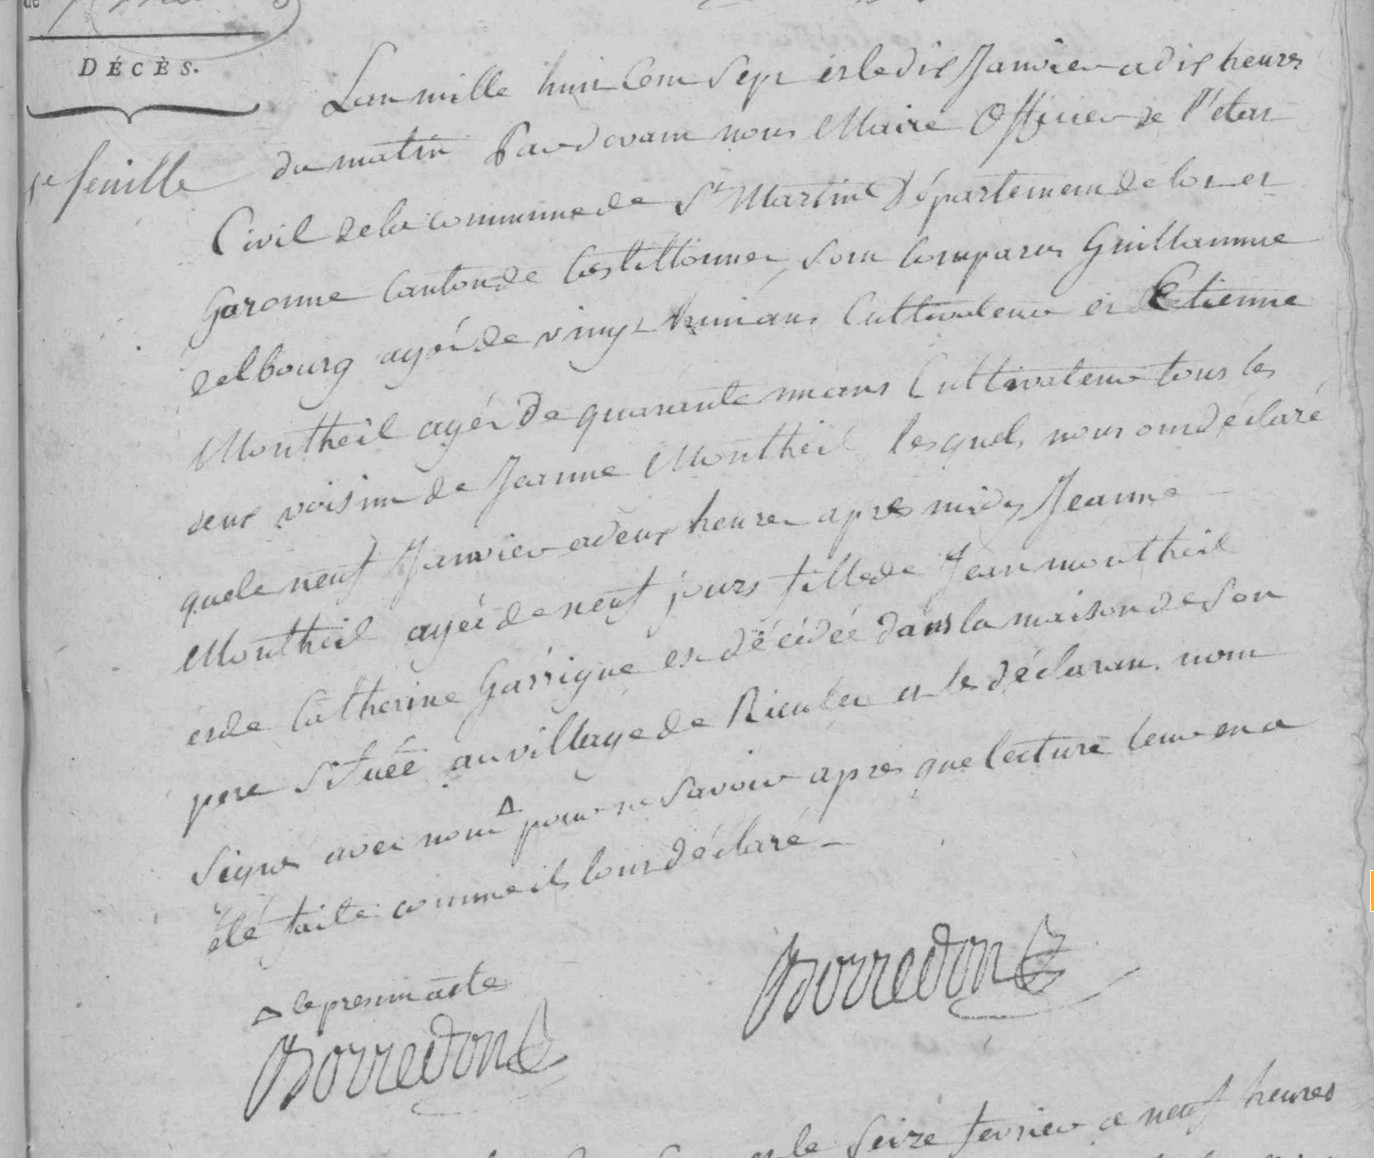 DÉCÈS.
1re feuille
Lan mille huit Cent Sept et le dix Janvier a dix heures
du matin Pardevant nous Maire Officier de l'état
Civil de la commune de St Martin Département de lot et
Garonne Canton de Castillonnes, sont Comparus Guillaumme
delbourg agée de vingt huit ans Cultivateur et Etienne
Montheil agée de quarante un ans Cultivateur tous les
deux voisin de Jeanne Montheil, lesquels nous ont déclaré
que le neuf Janvier a deux heures apres midy Jeanne
Montheil agée de neuf jours fille de Jean montheil
et de Catherine Garrigue est décédée dans la maison de Son
pere Située au village de et les déclarants nont
Signé avec nous ∆ pour ne Savoir apres que lecture leur en a
été faite comme ils l'ont déclaré -
∆ le present acte
Borredon
Borredon
le Seize fevrier a neuf heures